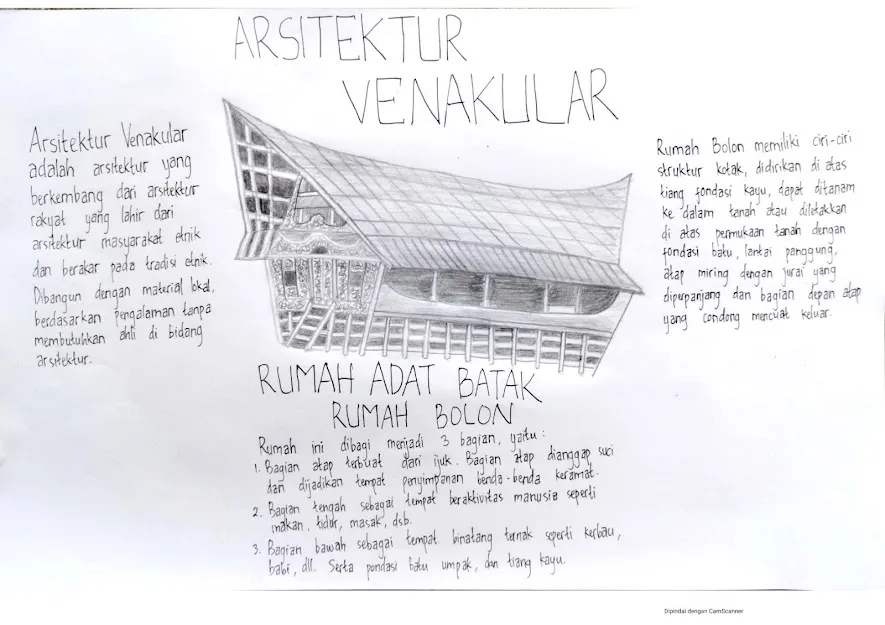 ARSITEKTUR
VENAKULAR
Arsitektur Venakular
adalah arsitektur yang
berkembang dari arsitektur
rakyat yang lahir dari
arsitektur masyarakat etnik
dan berakar pada tradisi etnik.
Dibangun dengan material lokal,
berdasarkan pengalaman tanpa
membutuhkan ahli di bidang
arsitektur.
Rumah Bolon memiliki ciri-ciri
struktur kotak, didirikan di atas
tiang fondasi kayu, dapat ditanam
ke dalam tanah atau diletakkan
di atas permukaan tanah dengan
fondasi batu, lantai panggung,
atap miring dengan jurai yang
diperpanjang dan bagian depan atap
yang condong mencuat keluar.
RUMAH ADAT BATAK
RUMAH BOLON
Rumah ini dibagi menjadi 3 bagian, yaitu :
1. Bagian atap terbuat dari ijuk. Bagian atap dianggap suci
dan dijadikan tempat penyimpanan benda-benda keramat.
2. Bagian tengah sebagai tempat beraktivitas manusia seperti
makan, tidur, masak, dsb.
3. Bagian bawah sebagai tempat binatang ternak seperti kerbau,
babi, dll. Serta pondasi batu umpak, dan tiang kayu.
Dipindai dengan CamScanner